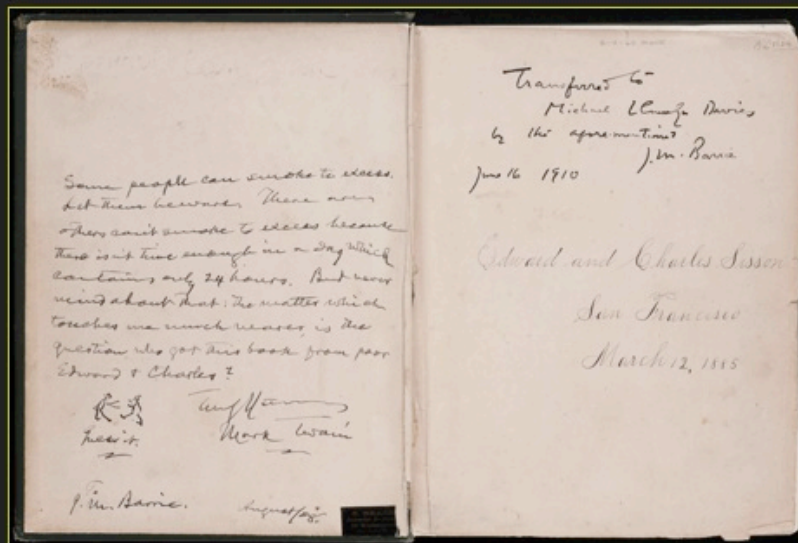 Some people can smoke to excess.
Let them beware. There are
others can't smoke to excess because
there isn't time enough in a day which
contains only 24 hours. But never
mind about that: the matter which
touches me much nearer, is the
question who got this book from poor
Edward & Charles?
Mark Twain
J. M. Barrie.
August
Transferred to
Michael Llewelyn Davies
by the aforementioned
J. M. Barrie
June 16 1910
Edward and Charles Sisson
San Francisco
March 12, 1885